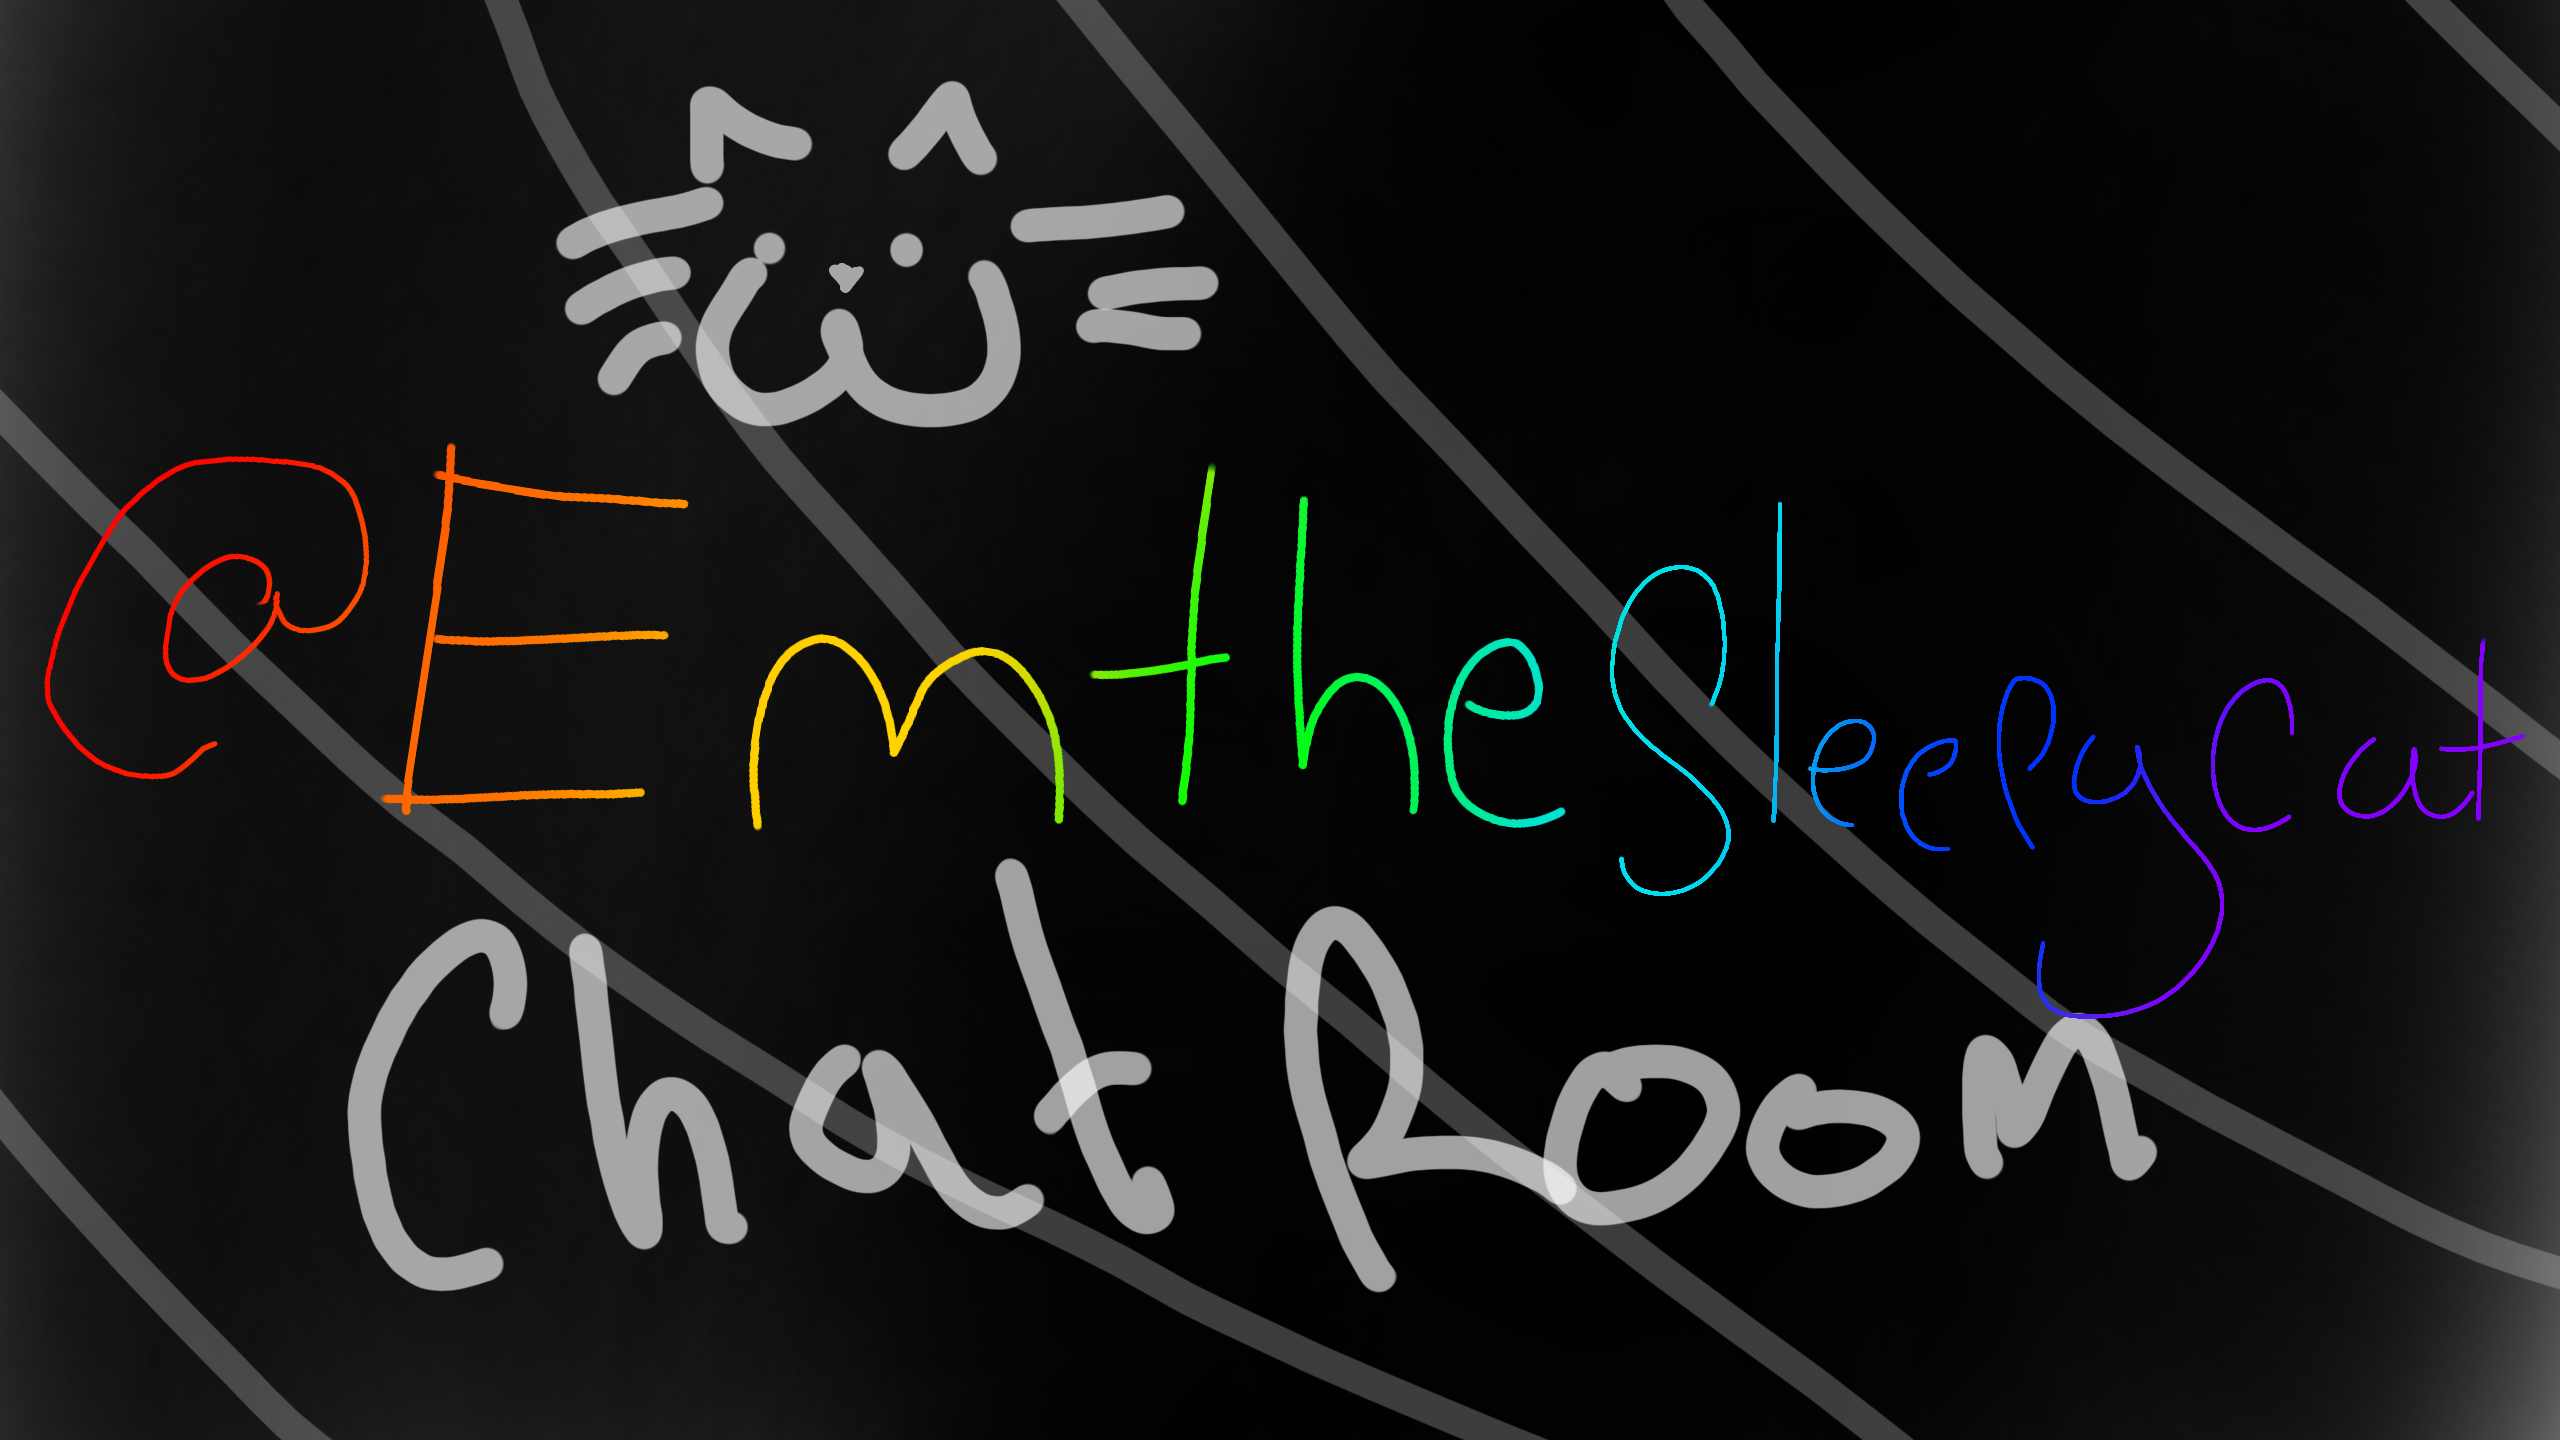 @EmtheSleepycat
Chat Room